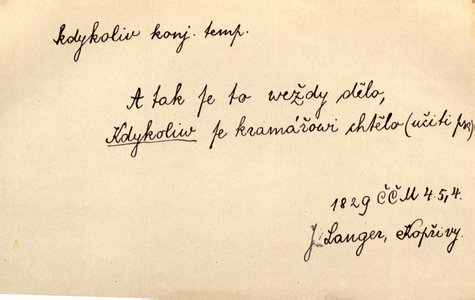 kdykoliv konj. temp.
A tak se to weždy dělo,
Kdykoliw se kramářowi chtělo (učiti
1829 ČČM 4.5,4.
J. Langer, Kopřivy.